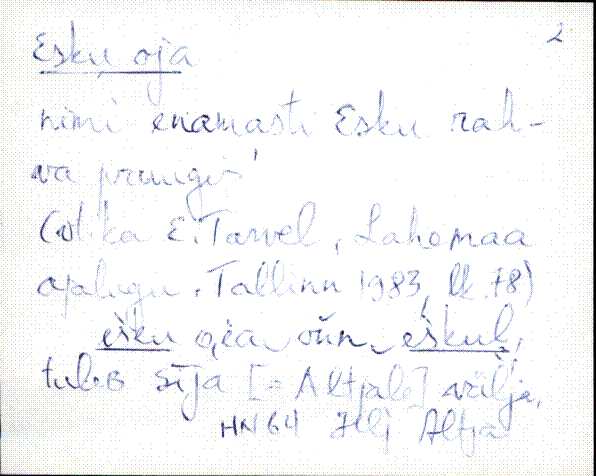 2
Esku oja
nimi enamasti Esku rah-
va pruugis
(vt. ka E. Tarvel, Lahemaa
ajalugu. Tallinn 1983, lk. 78)
ešku oja om eškul,
tuleb sīja [= Altjale] välja,
HN 64 Hlj Altja